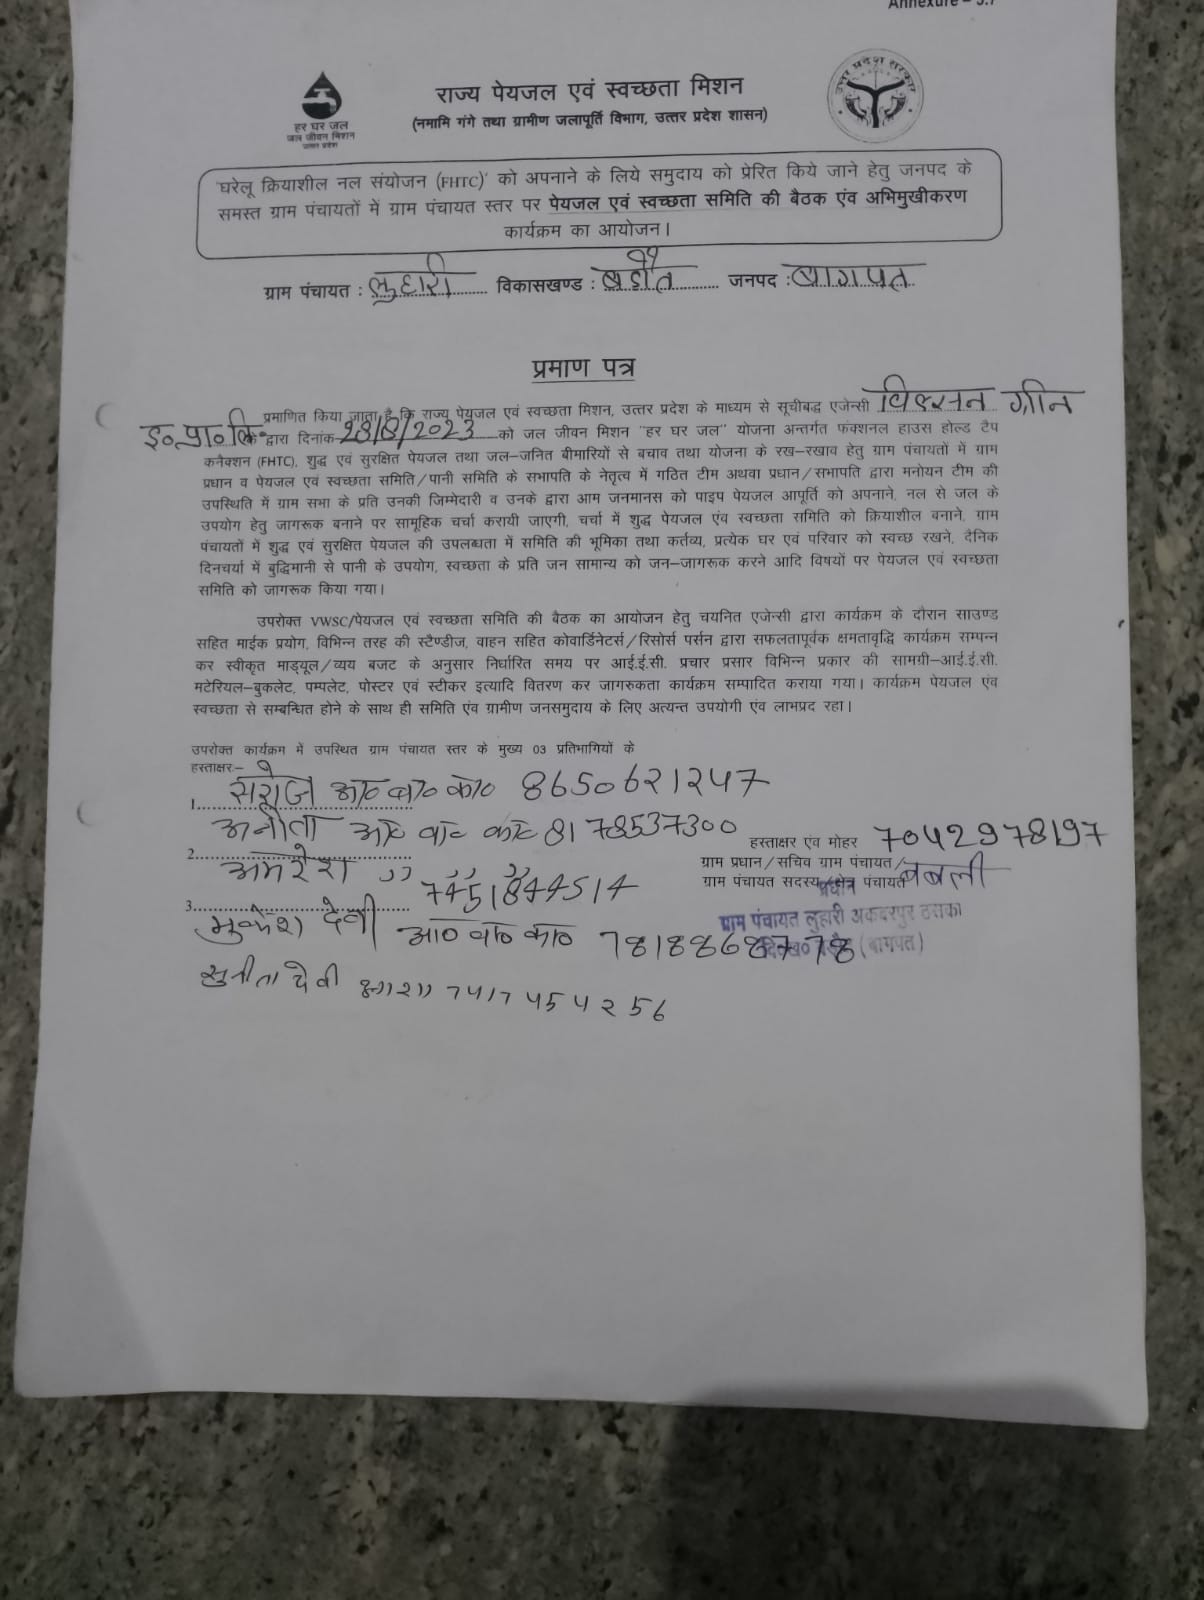 Annexure – 5.7
हर घर जल
जल जीवन मिशन
उत्तर प्रदेश
राज्य पेयजल एवं स्वच्छता मिशन
(नमामि गंगे तथा ग्रामीण जलापूर्ति विभाग, उत्तर प्रदेश शासन)
उत्तर प्रदेश सरकार
'घरेलू क्रियाशील नल संयोजन (FHTC)' को अपनाने के लिये समुदाय को प्रेरित किये जाने हेतु जनपद के
समस्त ग्राम पंचायतों में ग्राम पंचायत स्तर पर पेयजल एवं स्वच्छता समिति की बैठक एंव अभिमुखीकरण
कार्यक्रम का आयोजन।
ग्राम पंचायत : लुहारी विकासखण्ड : बड़ौत जनपद : बागपत
प्रमाण पत्र
प्रमाणित किया जाता है कि राज्य पेयजल एवं स्वच्छता मिशन, उत्तर प्रदेश के माध्यम से सूचीबद्ध एजेन्सी विल्सन ग्रीन
इ० प्रा० लि० के द्वारा दिनांक 28/8/2023 को जल जीवन मिशन "हर घर जल" योजना अन्तर्गत फंक्शनल हाउस होल्ड टैप
कनैक्शन (FHTC), शुद्ध एवं सुरक्षित पेयजल तथा जल–जनित बीमारियों से बचाव तथा योजना के रख–रखाव हेतु ग्राम पंचायतों में ग्राम
प्रधान व पेयजल एवं स्वच्छता समिति/पानी समिति के सभापति के नेतृत्व में गठित टीम अथवा प्रधान/सभापति द्वारा मनोयन टीम की
उपस्थिति में ग्राम सभा के प्रति उनकी जिम्मेदारी व उनके द्वारा आम जनमानस को पाइप पेयजल आपूर्ति को अपनाने, नल से जल के
उपयोग हेतु जागरूक बनाने पर सामूहिक चर्चा करायी जाएगी, चर्चा में शुद्ध पेयजल एंव स्वच्छता समिति को क्रियाशील बनाने, ग्राम
पंचायतों में शुद्ध एवं सुरक्षित पेयजल की उपलब्धता में समिति की भूमिका तथा कर्तव्य, प्रत्येक घर एवं परिवार को स्वच्छ रखने, दैनिक
दिनचर्या में बुद्धिमानी से पानी के उपयोग, स्वच्छता के प्रति जन सामान्य को जन–जागरूक करने आदि विषयों पर पेयजल एवं स्वच्छता
समिति को जागरूक किया गया।
उपरोक्त VWSC/पेयजल एवं स्वच्छता समिति की बैठक का आयोजन हेतु चयनित एजेन्सी द्वारा कार्यक्रम के दौरान साउण्ड
सहित माईक प्रयोग, विभिन्न तरह की स्टैण्डीज, वाहन सहित कोवार्डिनेटर्स/रिसोर्स पर्सन द्वारा सफलतापूर्वक क्षमतावृद्धि कार्यक्रम सम्पन्न
कर स्वीकृत माड्यूल/व्यय बजट के अनुसार निर्धारित समय पर आई.ई.सी. प्रचार प्रसार विभिन्न प्रकार की सामग्री–आई.ई.सी.
मटेरियल–बुकलेट, पम्पलेट, पोस्टर एवं स्टीकर इत्यादि वितरण कर जागरुकता कार्यक्रम सम्पादित कराया गया। कार्यक्रम पेयजल एंव
स्वच्छता से सम्बन्धित होने के साथ ही समिति एंव ग्रामीण जनसमुदाय के लिए अत्यन्त उपयोगी एंव लाभप्रद रहा।
उपरोक्त कार्यक्रम में उपस्थित ग्राम पंचायत स्तर के मुख्य 03 प्रतिभागियों के
हस्ताक्षरः–
1. सरोज आ० बा० का० 8650621247
अनीता आ० वा० का० 8178537300
हस्ताक्षर एंव मोहर 7042978197
2. अमरेश ,, ,, ,, 7451844514
ग्राम प्रधान/सचिव ग्राम पंचायत/
ग्राम पंचायत सदस्य/क्षेत्र पंचायत बबली
प्रधान
3. मुकेश देवी आ० वा० का० 7818868778
ग्राम पंचायत लुहारी अकबरपुर ठसका
वि०ख० बड़ौत (बागपत)
सुनीता देवी आशा 7417454256